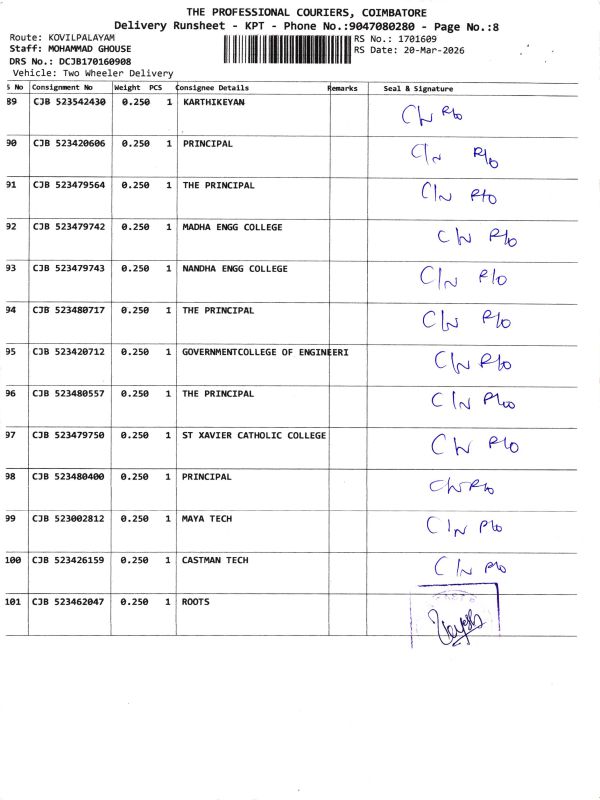 THE PROFESSIONAL COURIERS, COIMBATORE
Delivery Runsheet - KPT - Phone No.:9047080280 - Page No.:8
Route: KOVILPALAYAM
RS No.: 1701609
Staff: MOHAMMAD GHOUSE
RS Date: 20-Mar-2026
DRS No.: DCJB170160908
Vehicle: Two Wheeler Delivery
S No Consignment No Weight PCS Consignee Details Remarks Seal & Signature
89 CJB 523542430 0.250 1 KARTHIKEYAN C/N R/o
90 CJB 523420606 0.250 1 PRINCIPAL C/N R/o
91 CJB 523479564 0.250 1 THE PRINCIPAL C/N R/o
92 CJB 523479742 0.250 1 MADHA ENGG COLLEGE C/N R/o
93 CJB 523479743 0.250 1 NANDHA ENGG COLLEGE C/N R/o
94 CJB 523480717 0.250 1 THE PRINCIPAL C/N R/o
95 CJB 523420712 0.250 1 GOVERNMENTCOLLEGE OF ENGINEERI C/N R/o
96 CJB 523480557 0.250 1 THE PRINCIPAL C/N R/o
97 CJB 523479750 0.250 1 ST XAVIER CATHOLIC COLLEGE C/N R/o
98 CJB 523480400 0.250 1 PRINCIPAL C/N R/o
99 CJB 523002812 0.250 1 MAYA TECH C/N R/o
100 CJB 523426159 0.250 1 CASTMAN TECH C/N R/o
101 CJB 523462047 0.250 1 ROOTS